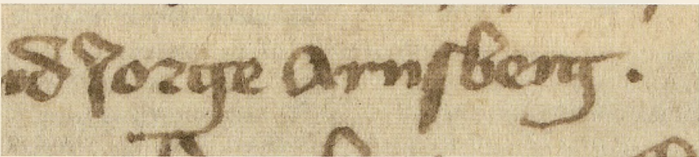 Jorge Arnsberg.